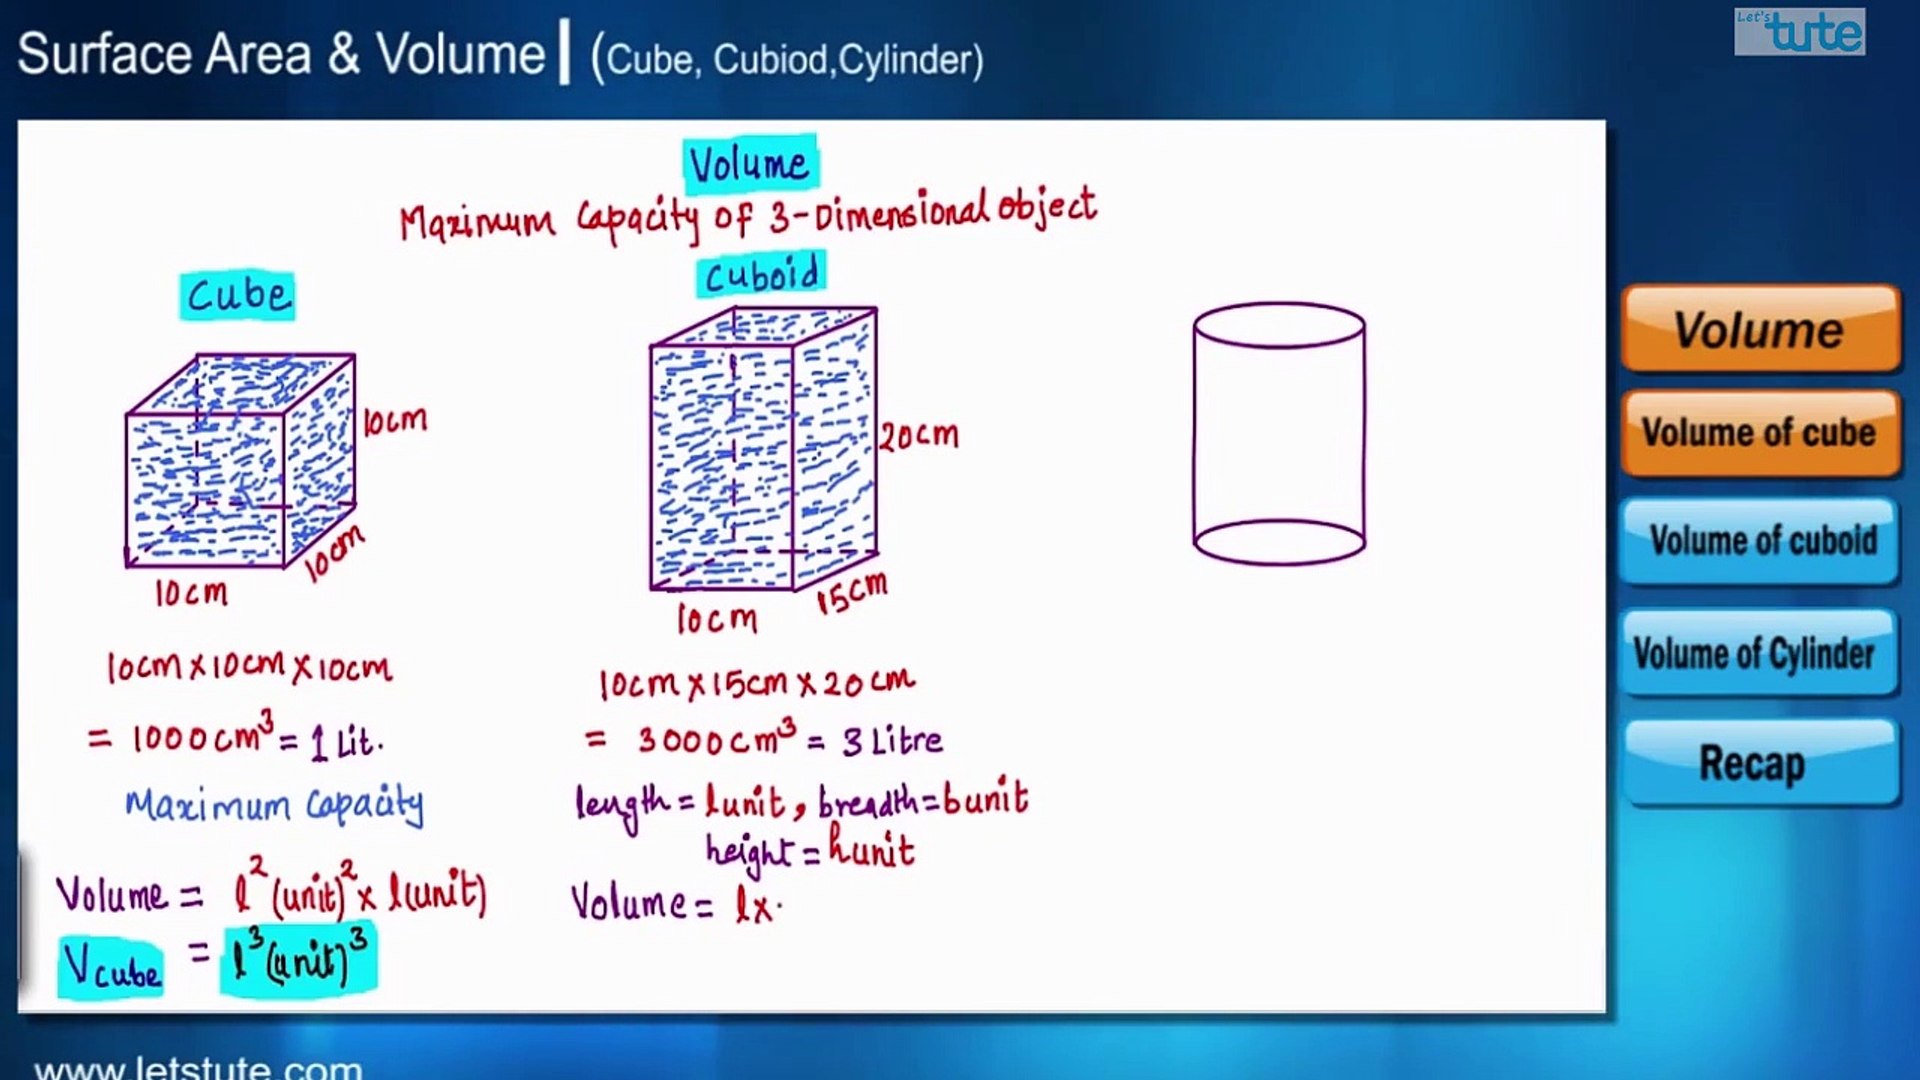 Surface Area & Volume | (Cube, Cubiod,Cylinder)
Let's tute
Volume
Maximum Capacity of 3-Dimensional object
Cube
10cm
10cm
10cm
10cm x 10cm x 10cm
= 1000 cm³ = 1 Lit.
Maximum Capacity
Volume = l² (unit)² x l(unit)
Vcube = l³ (unit)³
Cuboid
20cm
15cm
10cm
10cm x 15cm x 20cm
= 3000 cm³ = 3 Litre
length = l unit, breadth = b unit
height = h unit
Volume = l x
Volume
Volume of cube
Volume of cuboid
Volume of Cylinder
Recap
www.letstute.com